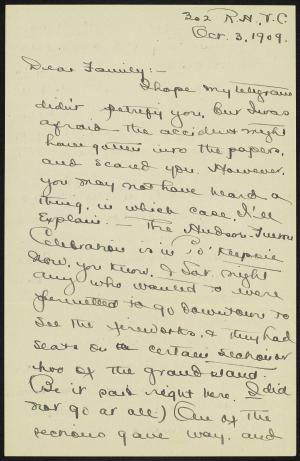 302 R.H., V.C.
Oct. 3, 1909.
Dear Family:-
I hope my telegram
didn't petrify you, but I was
afraid the accident might
have gotten into the papers,
and scared you. However,
you may not have heard a
thing, in which case, I'll
explain. - The Hudson-Fulton
Celebration is in Po'Keepsie
now, you know, & Sat. night
any who wanted to were
permitted to go downtown to
see the fireworks, & they had
seats on a certain section or
two of the grand stand.
(Be it said right here, I did
not go at all.) One of the
sections gave way, and